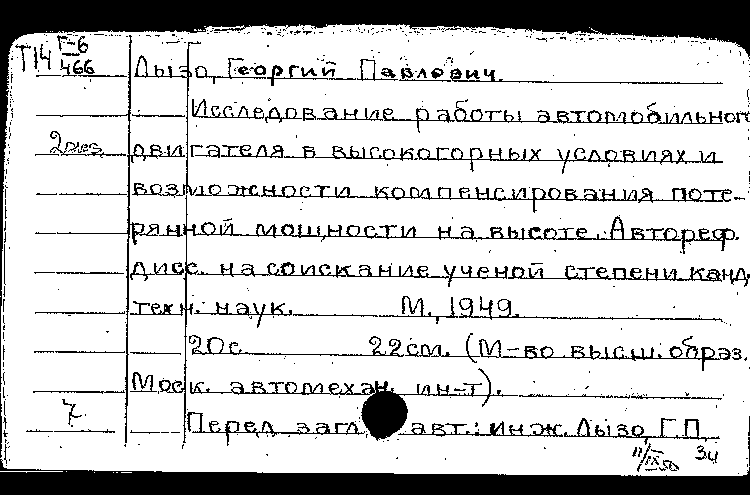 Т14 Г-6
466
Лызо, Георгий Павлович.
Исследование работы автомобильного
2экз двигателя в высокогорных условиях и
возможности компенсирования поте-
рянной мощности на высоте. Автореф.
дисс. на соискание ученой степени канд.
техн. наук. М., 1949.
20с 22см. (М-во высш. образ.
Моск. автомехан. ин-т).
7 Перед загл. авт.: инж. Лызо Г.П.
11/IX50 34